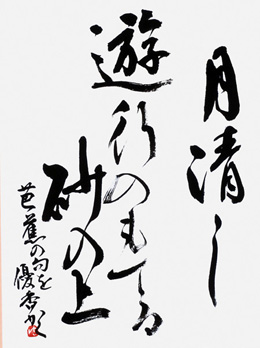 月清し
遊行のもてる
砂の上
芭蕉の句を
優香書